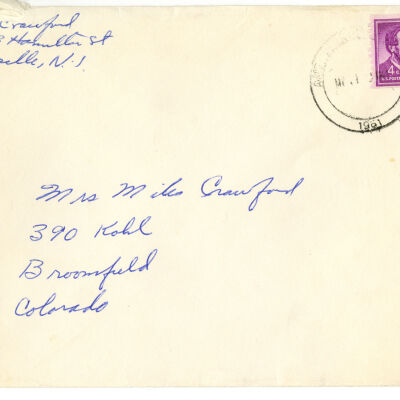 Crawford
Hamilton St
selle, N.J.
4¢
U.S. POSTAGE
1961
Mrs Miles Crawford
390 Kohl
Broomfield
Colorado